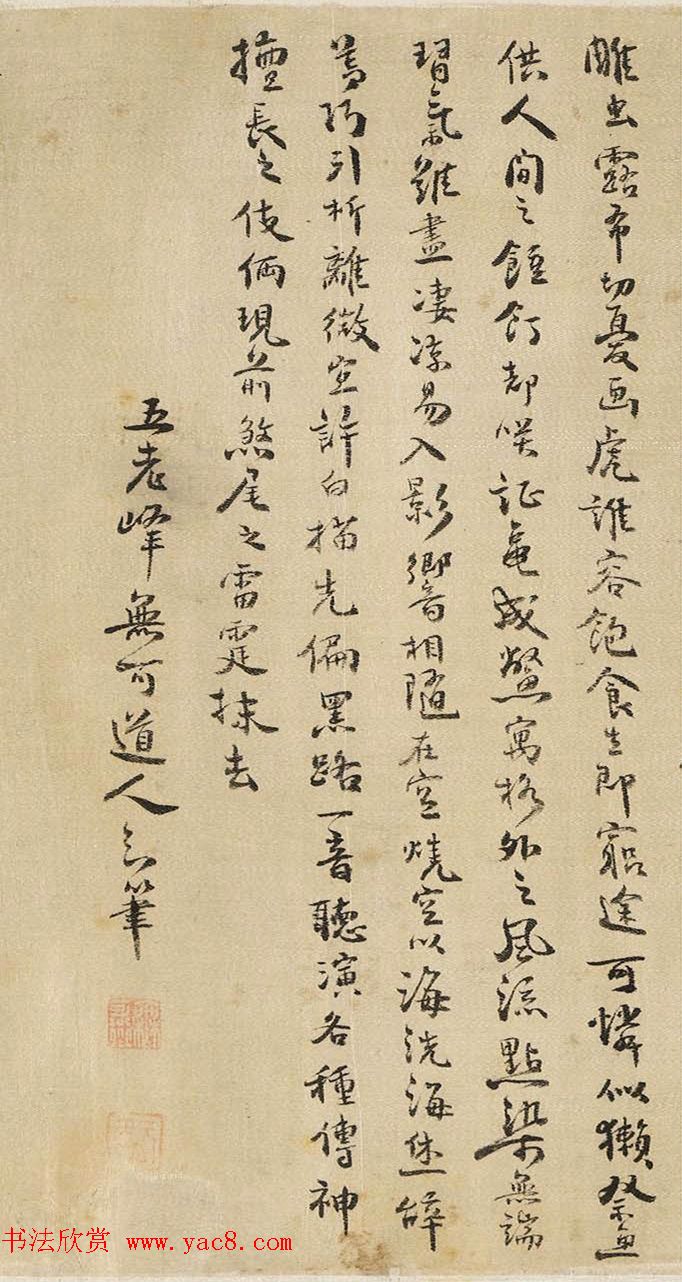 雕虫露布切憂画虎誰容飽食生即窮途可憐似獺祭魚
供人間之飣都咲證龜成鱉寓格外之風流點染無端
習氣難盡淒涼易入影響相隨在空燒空以海洗海 辭
巧引析離微宣許白描先偏黑路一音聽演各種傳神
擅長之伎倆現前煞尾之雷霆抹去
五老峰無可道人 筆
书法欣赏 www.yac8.com